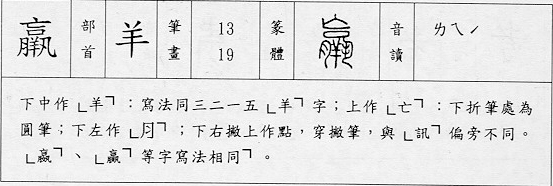 羸 部首 羊 筆畫 13 19 篆體 羸 音讀 ㄌㄟˊ
下中作「羊」:寫法同三二一五「羊」字;上作「亡」:下折筆處為
圓筆;下左作「月」;下右撇上作點,穿撇筆,與「訊」偏旁不同。
「嬴」、「贏」等字寫法相同」。